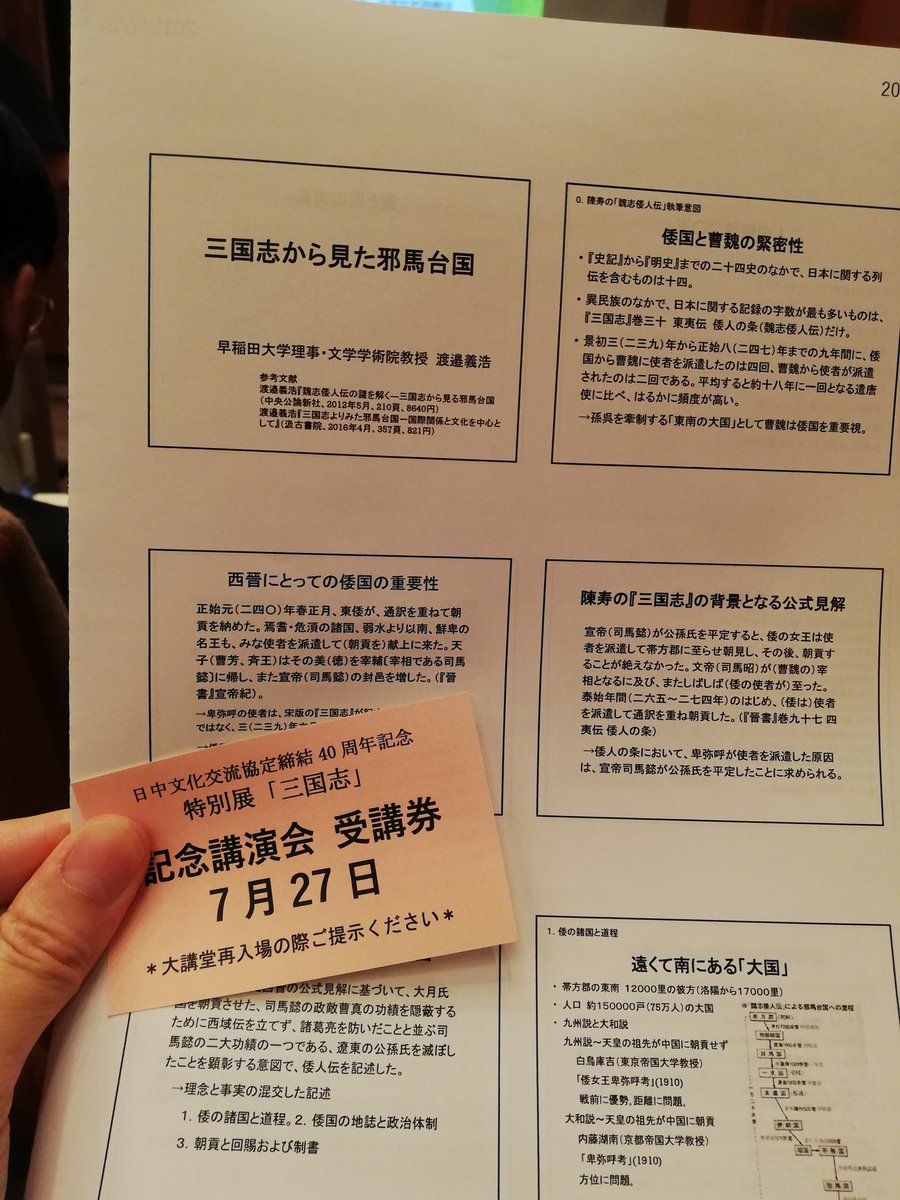 20
三国志から見た邪馬台国
早稲田大学理事・文学学術院教授 渡邉義浩
参考文献
渡邉義浩『魏志倭人伝の謎を解く―三国志から見る邪馬台国
(中央公論新社、2012年5月、210頁、8640円)
渡邉義浩『三国志よりみた邪馬台国―国際関係と文化を中心と
して』(汲古書院、2016年4月、357頁、821円)
0. 陳寿の「魏志倭人伝」執筆意図
倭国と曹魏の緊密性
・『史記』から『明史』までの二十四史のなかで、日本に関する列
伝を含むものは十四。
・異民族のなかで、日本に関する記録の字数が最も多いものは、
『三国志』巻三十 東夷伝 倭人の条(魏志倭人伝)だけ。
・景初三(二三九)年から正始八(二四七)年までの九年間に、倭
国から曹魏に使者を派遣したのは四回、曹魏から使者が派遣
されたのは二回である。平均すると約十八年に一回となる遣唐
使に比べ、はるかに頻度が高い。
→孫呉を牽制する「東南の大国」として曹魏は倭国を重要視。
西晉にとっての倭国の重要性
正始元(二四〇)年春正月、東倭が、通訳を重ねて朝
貢を納めた。焉耆・危須の諸国、弱水より以南、鮮卑の
名王も、みな使者を派遣して(朝貢を)献上に来た。天
子(曹芳、斉王)はその美(徳)を宰輔〔宰相である司馬
懿〕に帰し、また宣帝(司馬懿)の封邑を増した。(『晉
書』宣帝紀)。
→卑弥呼の使者は、宋版の『三国志』が
ではなく、三(二三九)年
陳寿の『三国志』の背景となる公式見解
宣帝(司馬懿)が公孫氏を平定すると、倭の女王は使
者を派遣して帯方郡に至らせ朝見し、その後、朝貢す
ることが絶えなかった。文帝(司馬昭)が(曹魏の)宰
相となるに及び、またしばしば(倭の使者が)至った。
泰始年間(二六五～二七四年)のはじめ、(倭は)使者
を派遣して通訳を重ね朝貢した。(『晉書』巻九十七 四
夷伝 倭人の条)
→倭人の条において、卑弥呼が使者を派遣した原因
は、宣帝司馬懿が公孫氏を平定したことに求められる。
日中文化交流協定締結 40 周年記念
特別展「三国志」
記念講演会 受講券
7 月 27 日
＊大講堂再入場の際ご提示ください＊
の公式見解に基づいて、大月氏
国を朝貢させた、司馬懿の政敵曹真の功績を隠蔽する
ために西域伝を立てず、諸葛亮を防いだことと並ぶ司
馬懿の二大功績の一つである、遼東の公孫氏を滅ぼし
たことを顕彰する意図で、倭人伝を記述した。
→理念と事実の混交した記述
1. 倭の諸国と道程。2. 倭国の地誌と政治体制
3. 朝貢と回賜および制書
1. 倭の諸国と道程
遠くて南にある「大国」
・帯方郡の東南 12000里の彼方(洛陽から17000里)
・人口 約150000戸(75万人)の大国
・九州説と大和説
九州説～天皇の祖先が中国に朝貢せず
白鳥庫吉(東京帝国大学教授)
「倭女王卑弥呼考」(1910)
戦前に優勢、距離に問題。
大和説～天皇の祖先が中国に朝貢
内藤湖南(京都帝国大学教授)
「卑弥呼考」(1910)
方位に問題。
「魏志倭人伝」による邪馬台国への里程
帯方郡
狗邪韓国
対馬国
一支国
末盧国
伊都国
奴国
不弥国
投馬国